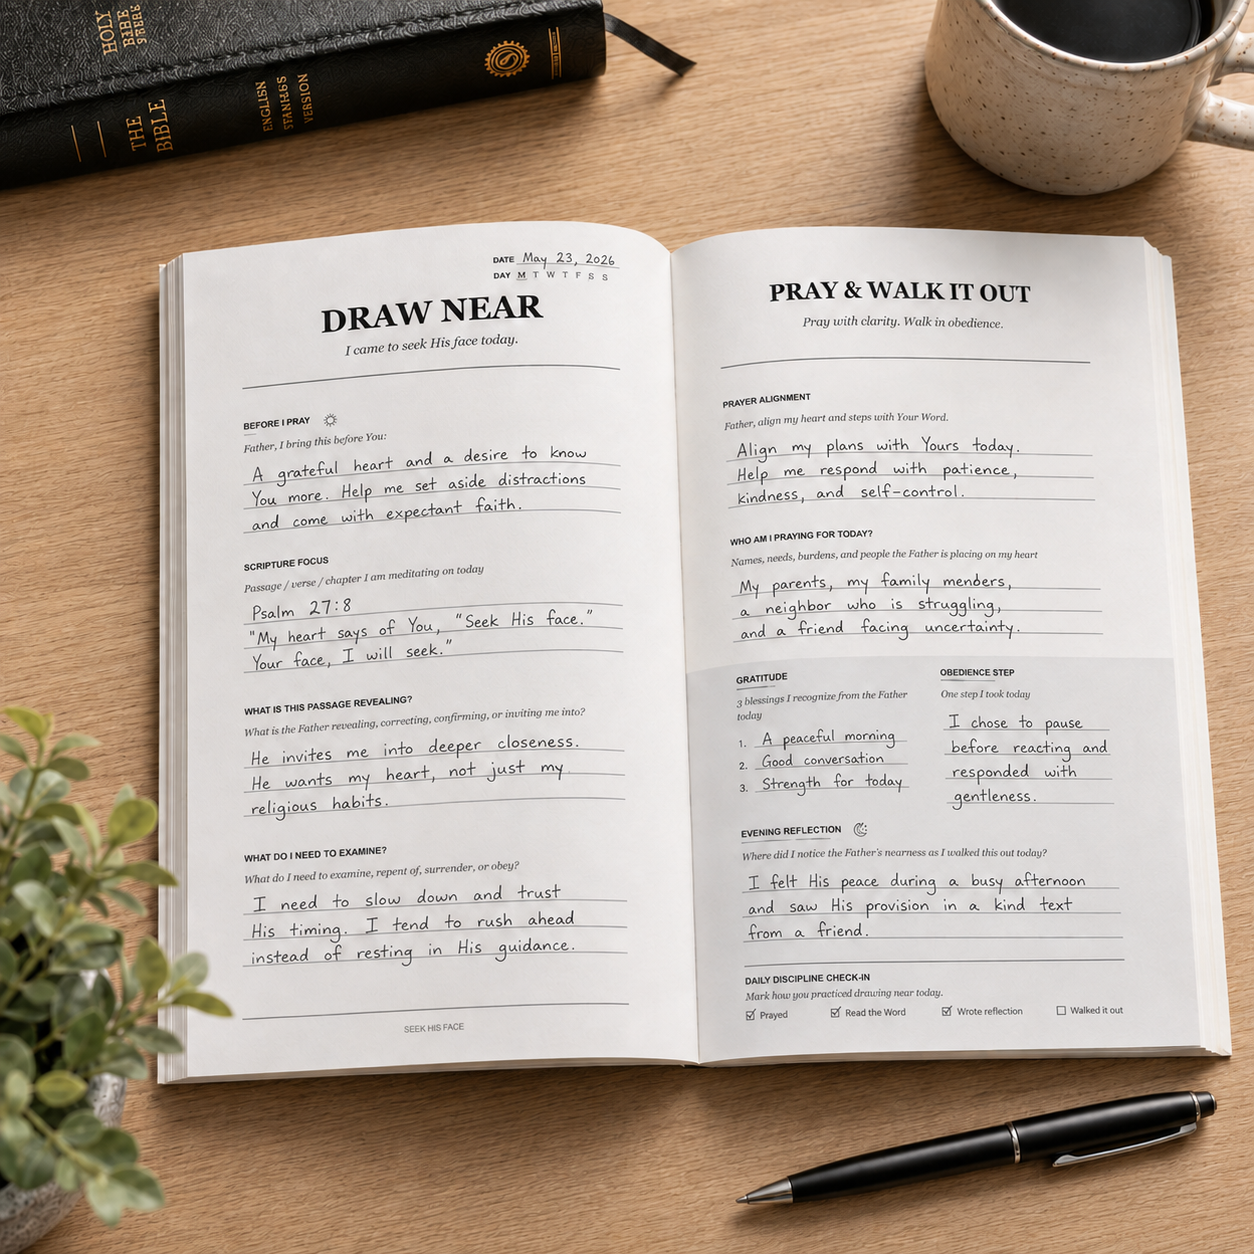 HOLY
BIBLE
THE
BIBLE
ENGLISH
VERSION
DATE May 23, 2026
DAY M T W T F S S
DRAW NEAR
I came to seek His face today.
BEFORE I PRAY
Father, I bring this before You:
A grateful heart and a desire to know
You more. Help me set aside distractions
and come with expectant faith.
SCRIPTURE FOCUS
Passage / verse / chapter I am meditating on today
Psalm 27:8
"My heart says of You, "Seek His face."
Your face, I will seek."
WHAT IS THIS PASSAGE REVEALING?
What is the Father revealing, correcting, confirming, or inviting me into?
He invites me into deeper closeness.
He wants my heart, not just my
religious habits.
WHAT DO I NEED TO EXAMINE?
What do I need to examine, repent of, surrender, or obey?
I need to slow down and trust
His timing. I tend to rush ahead
instead of resting in His guidance.
SEEK HIS FACE
PRAY & WALK IT OUT
Pray with clarity. Walk in obedience.
PRAYER ALIGNMENT
Father, align my heart and steps with Your Word.
Align my plans with Yours today.
Help me respond with patience,
kindness, and self-control.
WHO AM I PRAYING FOR TODAY?
Names, needs, burdens, and people the Father is placing on my heart
My parents, my family menders,
a neighbor who is struggling,
and a friend facing uncertainty.
GRATITUDE
3 blessings I recognize from the Father
today
1. A peaceful morning
2. Good conversation
3. Strength for today
OBEDIENCE STEP
One step I took today
I chose to pause
before reacting and
responded with
gentleness.
EVENING REFLECTION
Where did I notice the Father's nearness as I walked this out today?
I felt His peace during a busy afternoon
and saw His provision in a kind text
from a friend.
DAILY DISCIPLINE CHECK-IN
Mark how you practiced drawing near today.
Prayed Read the Word Wrote reflection Walked it out